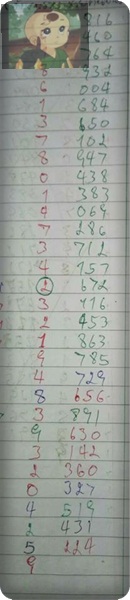 816
460
764
8 932
6 004
1 684
3 650
7 102
8 947
0 438
1 383
9 069
7 286
3 712
4 157
2 672
3 916
2 453
1 863
9 785
4 729
8 656
3 891
9 630
3 142
2 360
0 327
4 519
2 431
5 224
9